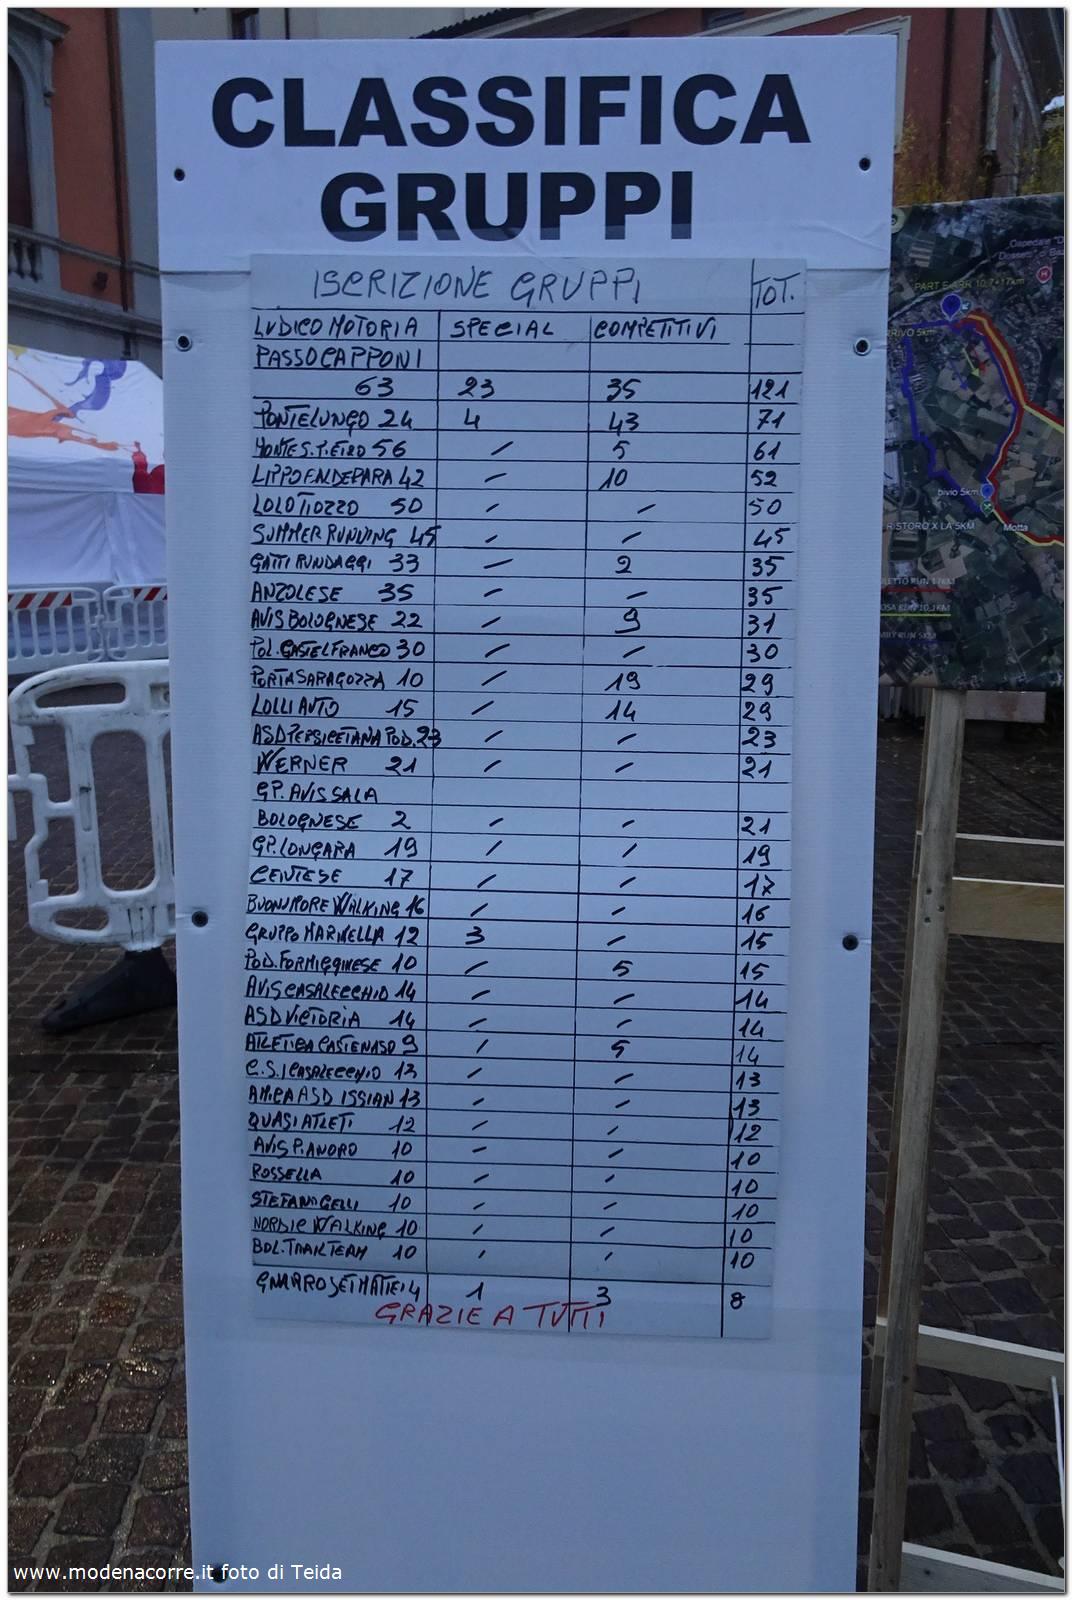 CLASSIFICA
GRUPPI
ISCRIZIONE GRUPPI TOT.
LUDICO MOTORIA SPECIAL COMPETITIVI
PASSO CAPPONI
63 23 35 121
PONTELUNGO 24 4 43 71
MONTE S. PIETRO 56 - 5 61
LIPPOENDEPARA 42 - 10 52
LOLOTIOZZO 50 - - 50
SUMMER RUNNING 45 - - 45
GATTI RUNDAGGI 33 - 2 35
ANZOLESE 35 - - 35
AVIS BOLOGNESE 22 - 9 31
POL. CASTELFRANCO 30 - - 30
PORTA SARAGOZZA 10 - 19 29
LOLLI AUTO 15 - 14 29
ASD PERSICETANA POD. 23 - - 23
WERNER 21 - - 21
GP. AVIS SALA
BOLOGNESE 2 - - 21
GP. LONGARA 19 / / 19
CENTESE 17 - - 17
BUONUMORE WALKING 16 - - 16
GRUPPO MARINELLA 12 3 - 15
POD. FORMIGGINESE 10 - 5 15
AVIS CASALECCHIO 14 - - 14
ASD VICTORIA 14 - - 14
ATLETICA CASTENASO 9 / 5 14
C.S.I CASALECCHIO 13 - - 13
AMICA ASD ISSIAN 13 - - 13
QUASI ATLETI 12 - - 12
AVIS PIANORO 10 - - 10
ROSSELLA 10 - - 10
STEFANO GELLI 10 - - 10
NORDIC WALKING 10 - - 10
BOL. TRAIL TEAM 10 - - 10
4 1 3 8
GRAZIE A TUTTI
Ospedale "D
Dossetti" di Ba
H
PART E ARR 10,7+17km
ARRIVO 5km
bivio 5km
RISTORO X LA 5KM
Motta
LETTO RUN 17KM
OSA RUN 10,7KM
MILY RUN 5KM
www.modenacorre.it foto di Teida